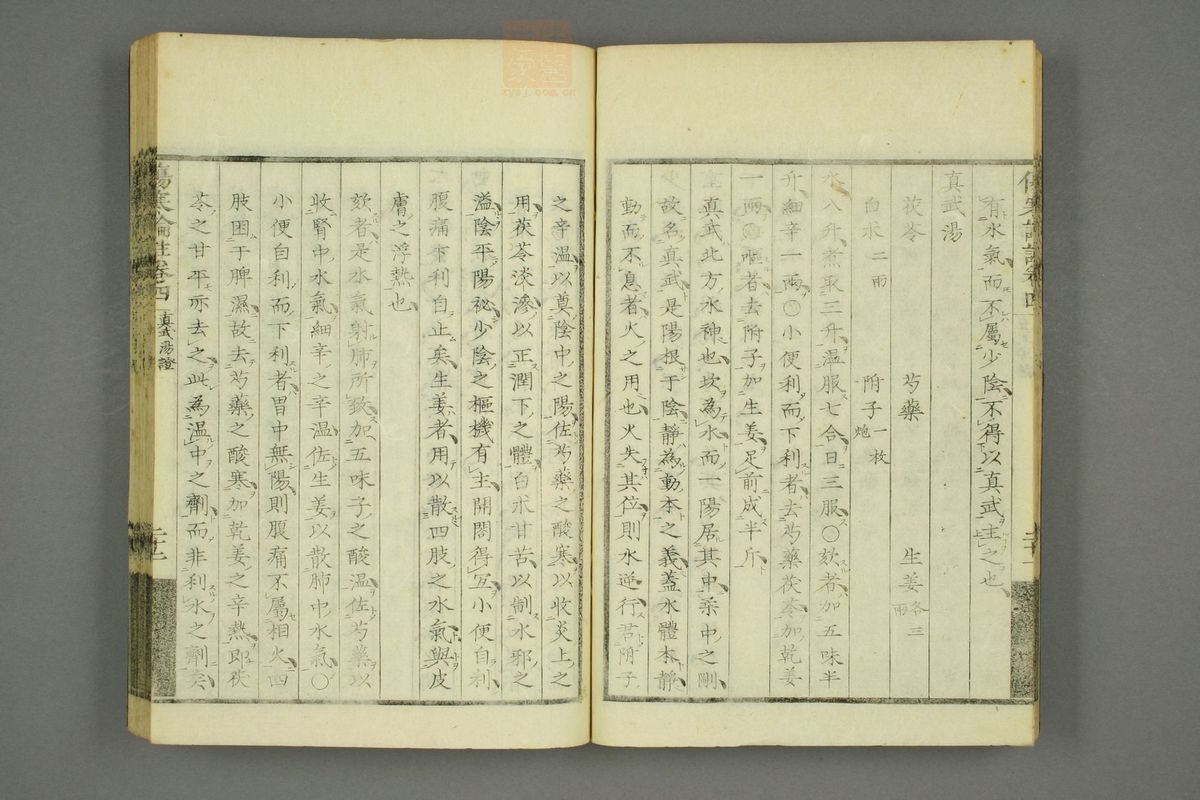 有水氣而不屬少陰不得以真武主之也
真武湯
茯苓 芍藥 生姜各三兩
白朮二兩 附子一枚炮
水八升煮取三升溫服七合日三服〇欬者加五味半
升細辛一兩〇小便利而下利者去芍藥茯苓加乾姜
一兩〇嘔者去附子加生姜足前成半斤
真武北方水神也坎為水而一陽居其中柔中之剛
故名真武是陽根于陰靜為動本之義蓋水體本靜
動而不息者火之用也火失其位則水逆行君附子
之辛溫以奠陰中之陽佐芍藥之酸寒以收炎上之
用茯苓淡滲以正潤下之體白朮甘苦以制水邪之
溢陰平陽祕少陰之樞機有主開闔得互小便自利
腹痛下利自止矣生姜者用以散四肢之水氣與皮
膚之浮熱也
欬者是水氣射肺所致加五味子之酸溫佐芍藥以
收腎中水氣細辛之辛溫佐生姜以散肺中水氣〇
小便自利而下利者胃中無陽則腹痛不屬相火四
肢困于脾濕故去芍藥之酸寒加乾姜之辛熱即茯
苓之甘平亦去之此為溫中之劑而非利水之劑矣
傷寒論註卷四 真武湯證